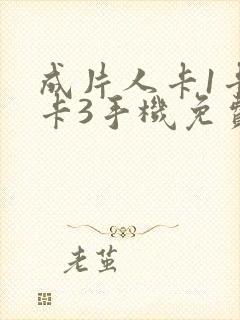 成片人卡1卡
卡3手機免費
老茧